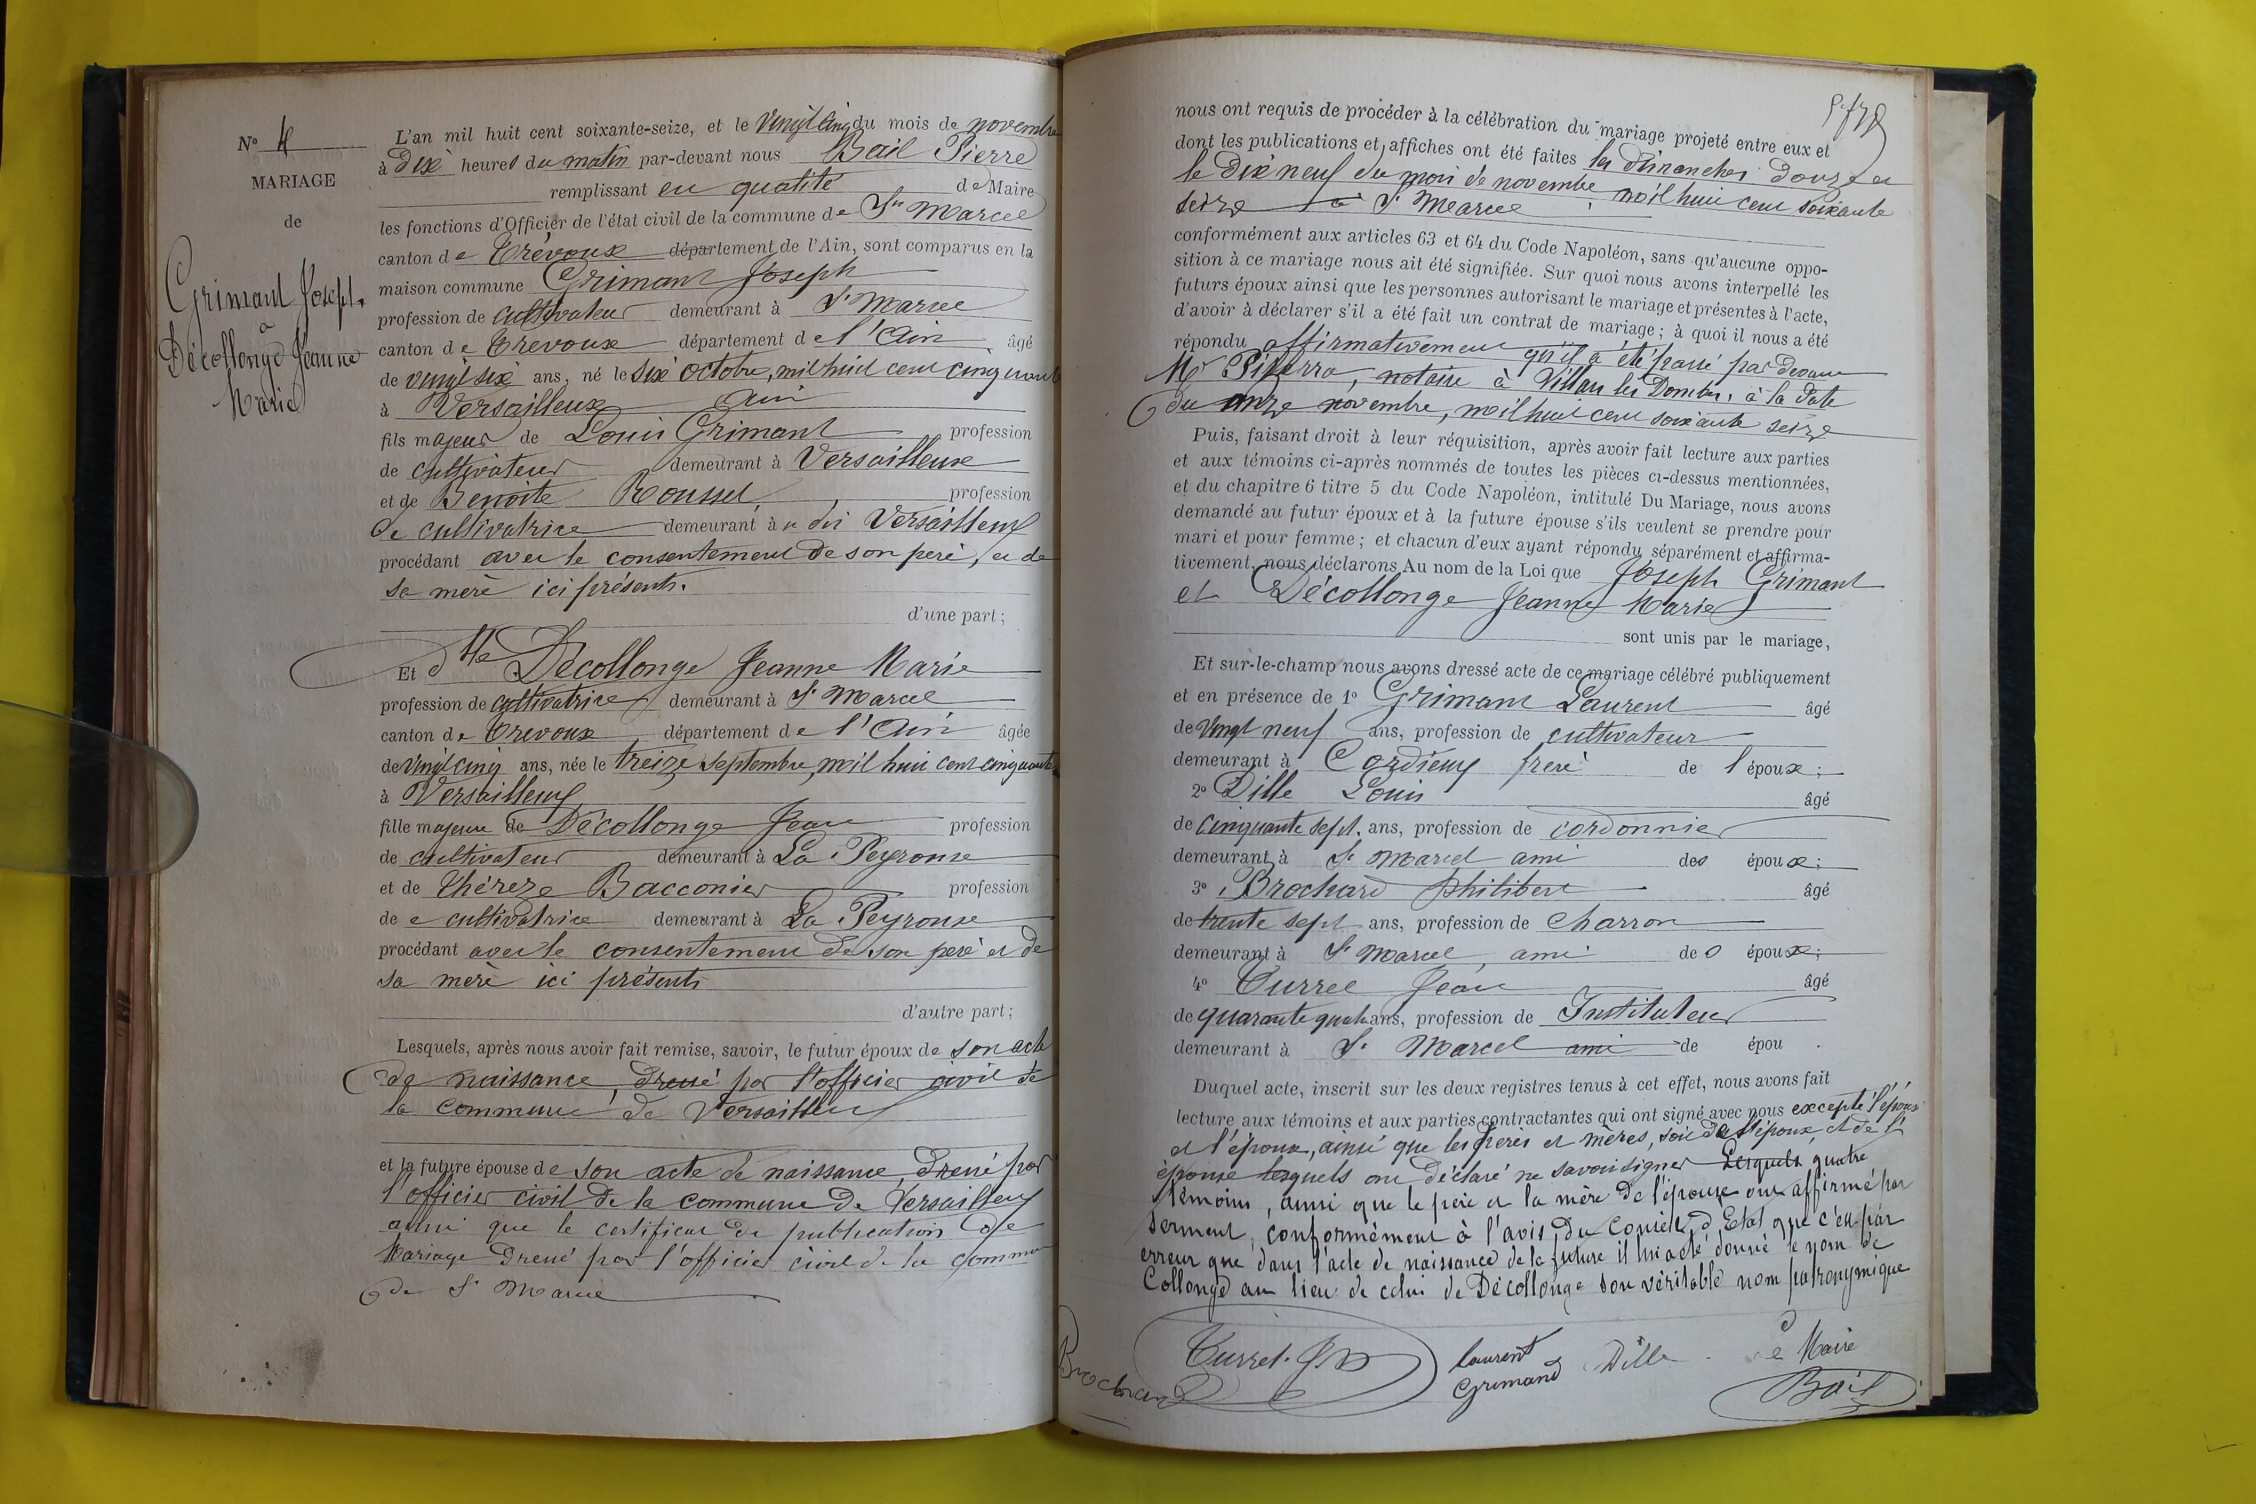 N° 4
MARIAGE
de
Grimaut Joseph
à
Décollonge Jeanne
Marie
L'an mil huit cent soixante-seize, et le vingt cinq du mois de novembre
à dix heures du matin par-devant nous Bail Pierre
remplissant en qualité de Maire
les fonctions d'Officier de l'état civil de la commune de St Marcel
canton de Trévoux département de l'Ain, sont comparus en la
maison commune Grimaut Joseph
profession de cultivateur demeurant à St Marcel
canton de Trevoux département de l'Ain âgé
de vingt six ans, né le six octobre, mil huit cent cinquante
à Versailleux Ain
fils majeur de Louis Grimaut profession
de cultivateur demeurant à Versailleux
et de Benoite Roussel, profession
de cultivatrice demeurant à Versailleux
procédant avec le consentement de son père, et de
sa mère ici présents.
d'une part;
Et dlle Décollonge Jeanne Marie
profession de cultivatrice demeurant à St Marcel
canton de Trevoux département de l'Ain âgée
de vingt cinq ans, née le treize septembre, mil huit cent cinquante
à Versailleux
fille majeure de Décollonge Jean profession
de cultivateur demeurant à La Peyrouse
et de Thérèze Bacconier profession
de cultivatrice demeurant à La Peyrouse
procédant avec le consentement de son père et de
sa mère ici présents
d'autre part;
Lesquels, après nous avoir fait remise, savoir, le futur époux de son acte
de naissance, dressé par l'officier civil de
la commune de Versailleux
et la future épouse de son acte de naissance, dressé par
l'officier civil de la commune de Versailleux
ainsi que le certificat de publication de
Mariage dressé par l'officier civil de la commune
de St Marcel
nous ont requis de procéder à la célébration du mariage projeté entre eux et
dont les publications et affiches ont été faites les dimanches douze et
le dix neuf du mois de novembre mil huit cent soixante
seize à St Marcel
conformément aux articles 63 et 64 du Code Napoléon, sans qu'aucune oppo-
sition à ce mariage nous ait été signifiée. Sur quoi nous avons interpellé les
futurs époux ainsi que les personnes autorisant le mariage et présentes à l'acte,
d'avoir à déclarer s'il a été fait un contrat de mariage; à quoi il nous a été
répondu affirmativement qu'il a été passé par devant
Mr, notaire à Villars les Dombes, à la date
du onze novembre, mil huit cent soixante seize
Puis, faisant droit à leur réquisition, après avoir fait lecture aux parties
et aux témoins ci-après nommés de toutes les pièces ci-dessus mentionnées,
et du chapitre 6 titre 5 du Code Napoléon, intitulé Du Mariage, nous avons
demandé au futur époux et à la future épouse s'ils veulent se prendre pour
mari et pour femme; et chacun d'eux ayant répondu séparément et affirma-
tivement, nous déclarons Au nom de la Loi que Joseph Grimaut
et Décollonge Jeanne Marie
sont unis par le mariage,
Et sur-le-champ nous avons dressé acte de ce mariage célébré publiquement
et en présence de 1° Grimaut Laurent âgé
de vingt neuf ans, profession de cultivateur
demeurant à Cordieux frère de l'époux;
2° Dille Louis âgé
de cinquante sept ans, profession de cordonnier
demeurant à St Marcel ami des époux;
3° Brochard Philibert âgé
de trente sept ans, profession de charron
demeurant à St Marcel, ami des époux;
4° Turrel Jean âgé
de quarante quatre ans, profession de Instituteur
demeurant à St Marcel ami de épou .
Duquel acte, inscrit sur les deux registres tenus à cet effet, nous avons fait
lecture aux témoins et aux parties contractantes qui ont signé avec nous excepté l'époux
et l'épouse, ainsi que les pères et mères, soit de l'époux, et de l'
épouse lesquels ont déclaré ne savoir signer Lesquels quatre
témoins, ainsi que le père et la mère de l'épouse ont affirmé par
serment, conformément à l'avis du Conseil d'Etat que c'est par
erreur que dans l'acte de naissance de la future il lui a été donné le nom de
Collonge au lieu de celui de Décollonge son véritable nom patronymique
Brochard
Turrel
Laurent
Grimand
Dille
Le Maire
Bail